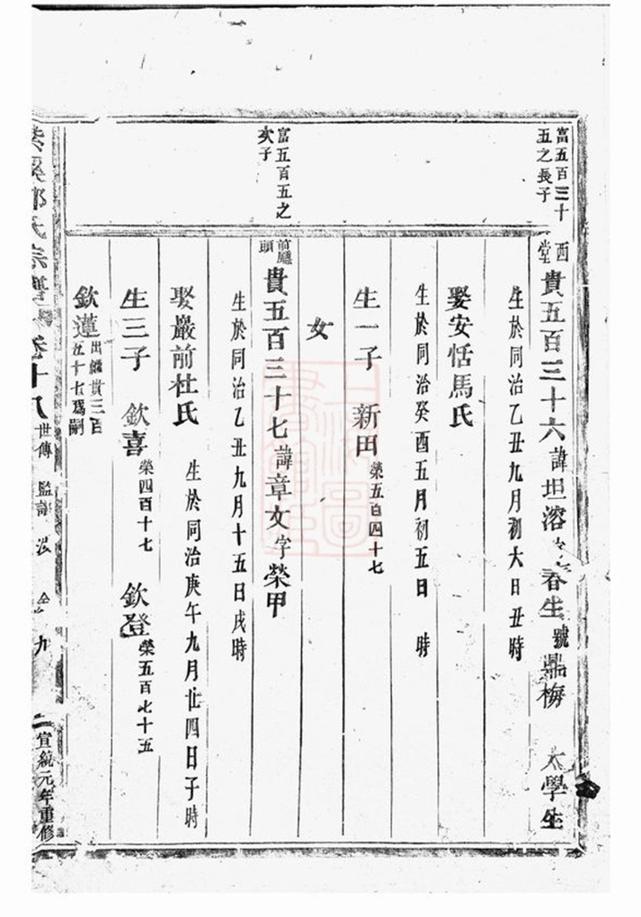 富五百三十
五之長子
西
堂
貴五百三十六 諱坦溶 春生 號鼎梅 太學生
生於同治乙丑九月初六日丑時
娶安恬馬氏
生於同治癸酉五月初五日 時
生一子 新田 榮五百四十七
女
富五百五之
次子
前廳
頭
貴五百三十七 諱章文 字榮甲
生於同治乙丑九月十五日戌時
娶嚴前杜氏
生於同治庚午九月廿四日子時
生三子 欽喜 榮四百十七 欽登 榮五百七十五
欽蓮 出繼貴三百
五十七爲嗣
氏宗譜 卷十八 世傳 九 宣統元年重修